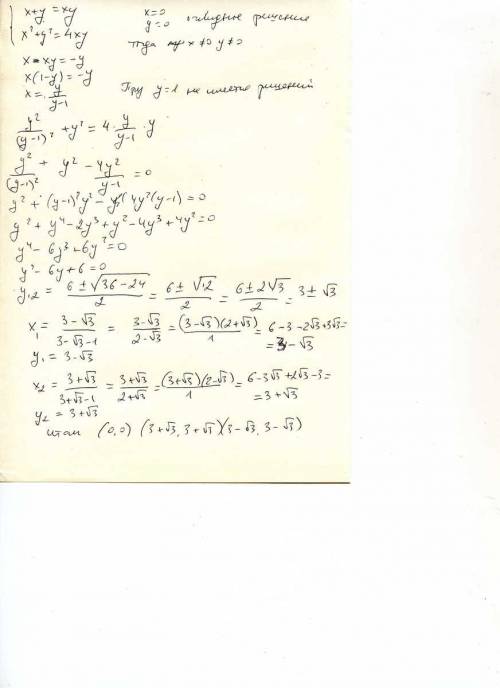 x+y = xy
x² + y² = 4xy
x=0
y=0 очевидное решение
тогда x≠0 y≠0
x - xy = -y
x(1-y) = -y
x = y/(y-1)
При y=1 не имеет решений
y²/(y-1)² + y² = 4 · y/(y-1) · y
y²/(y-1)² + y² - 4y²/(y-1) = 0
y² + (y-1)²y² - 4y²(y-1) = 0
y² + y⁴ - 2y³ + y² - 4y³ + 4y² = 0
y⁴ - 6y³ + 6y² = 0
y² - 6y + 6 = 0
y₁,₂ = (6 ± √(36-24))/2 = (6 ± √12)/2 = (6 ± 2√3)/2 = 3 ± √3
x₁ = (3-√3)/(3-√3-1) = (3-√3)/(2-√3) = (3-√3)(2+√3)/1 = 6-3-2√3+3√3 =
= 3-√3
y₁ = 3-√3
x₂ = (3+√3)/(3+√3-1) = (3+√3)/(2+√3) = (3+√3)(2-√3)/1 = 6-3√3+2√3-3 =
= 3+√3
y₂ = 3+√3
Итак (0,0) (3+√3, 3+√3)(3-√3, 3-√3)